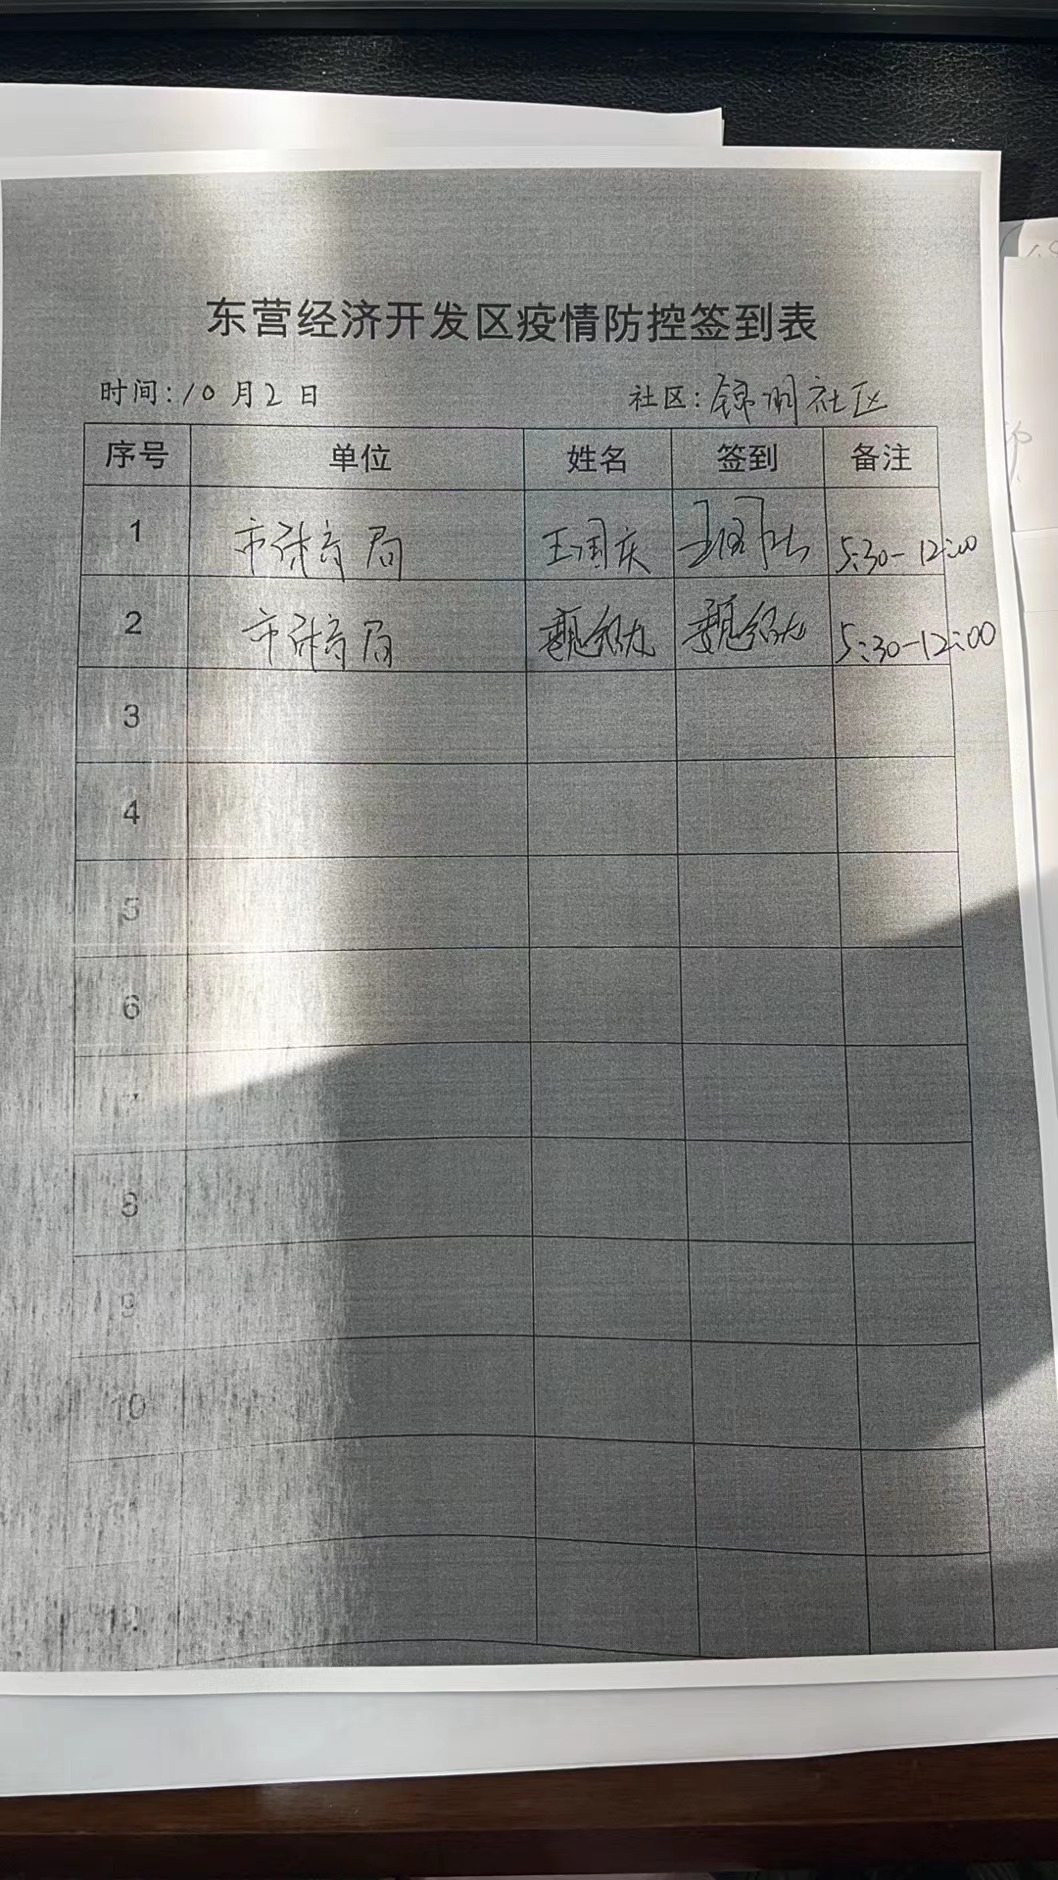 东营经济开发区疫情防控签到表
时间:10月2日 社区:锦明社区
序号 单位 姓名 签到 备注
1 市体育局 王国庆 王国庆 5:30-12:00
2 市体育局 5:30-12:00
3
4
5
6
8
9
10